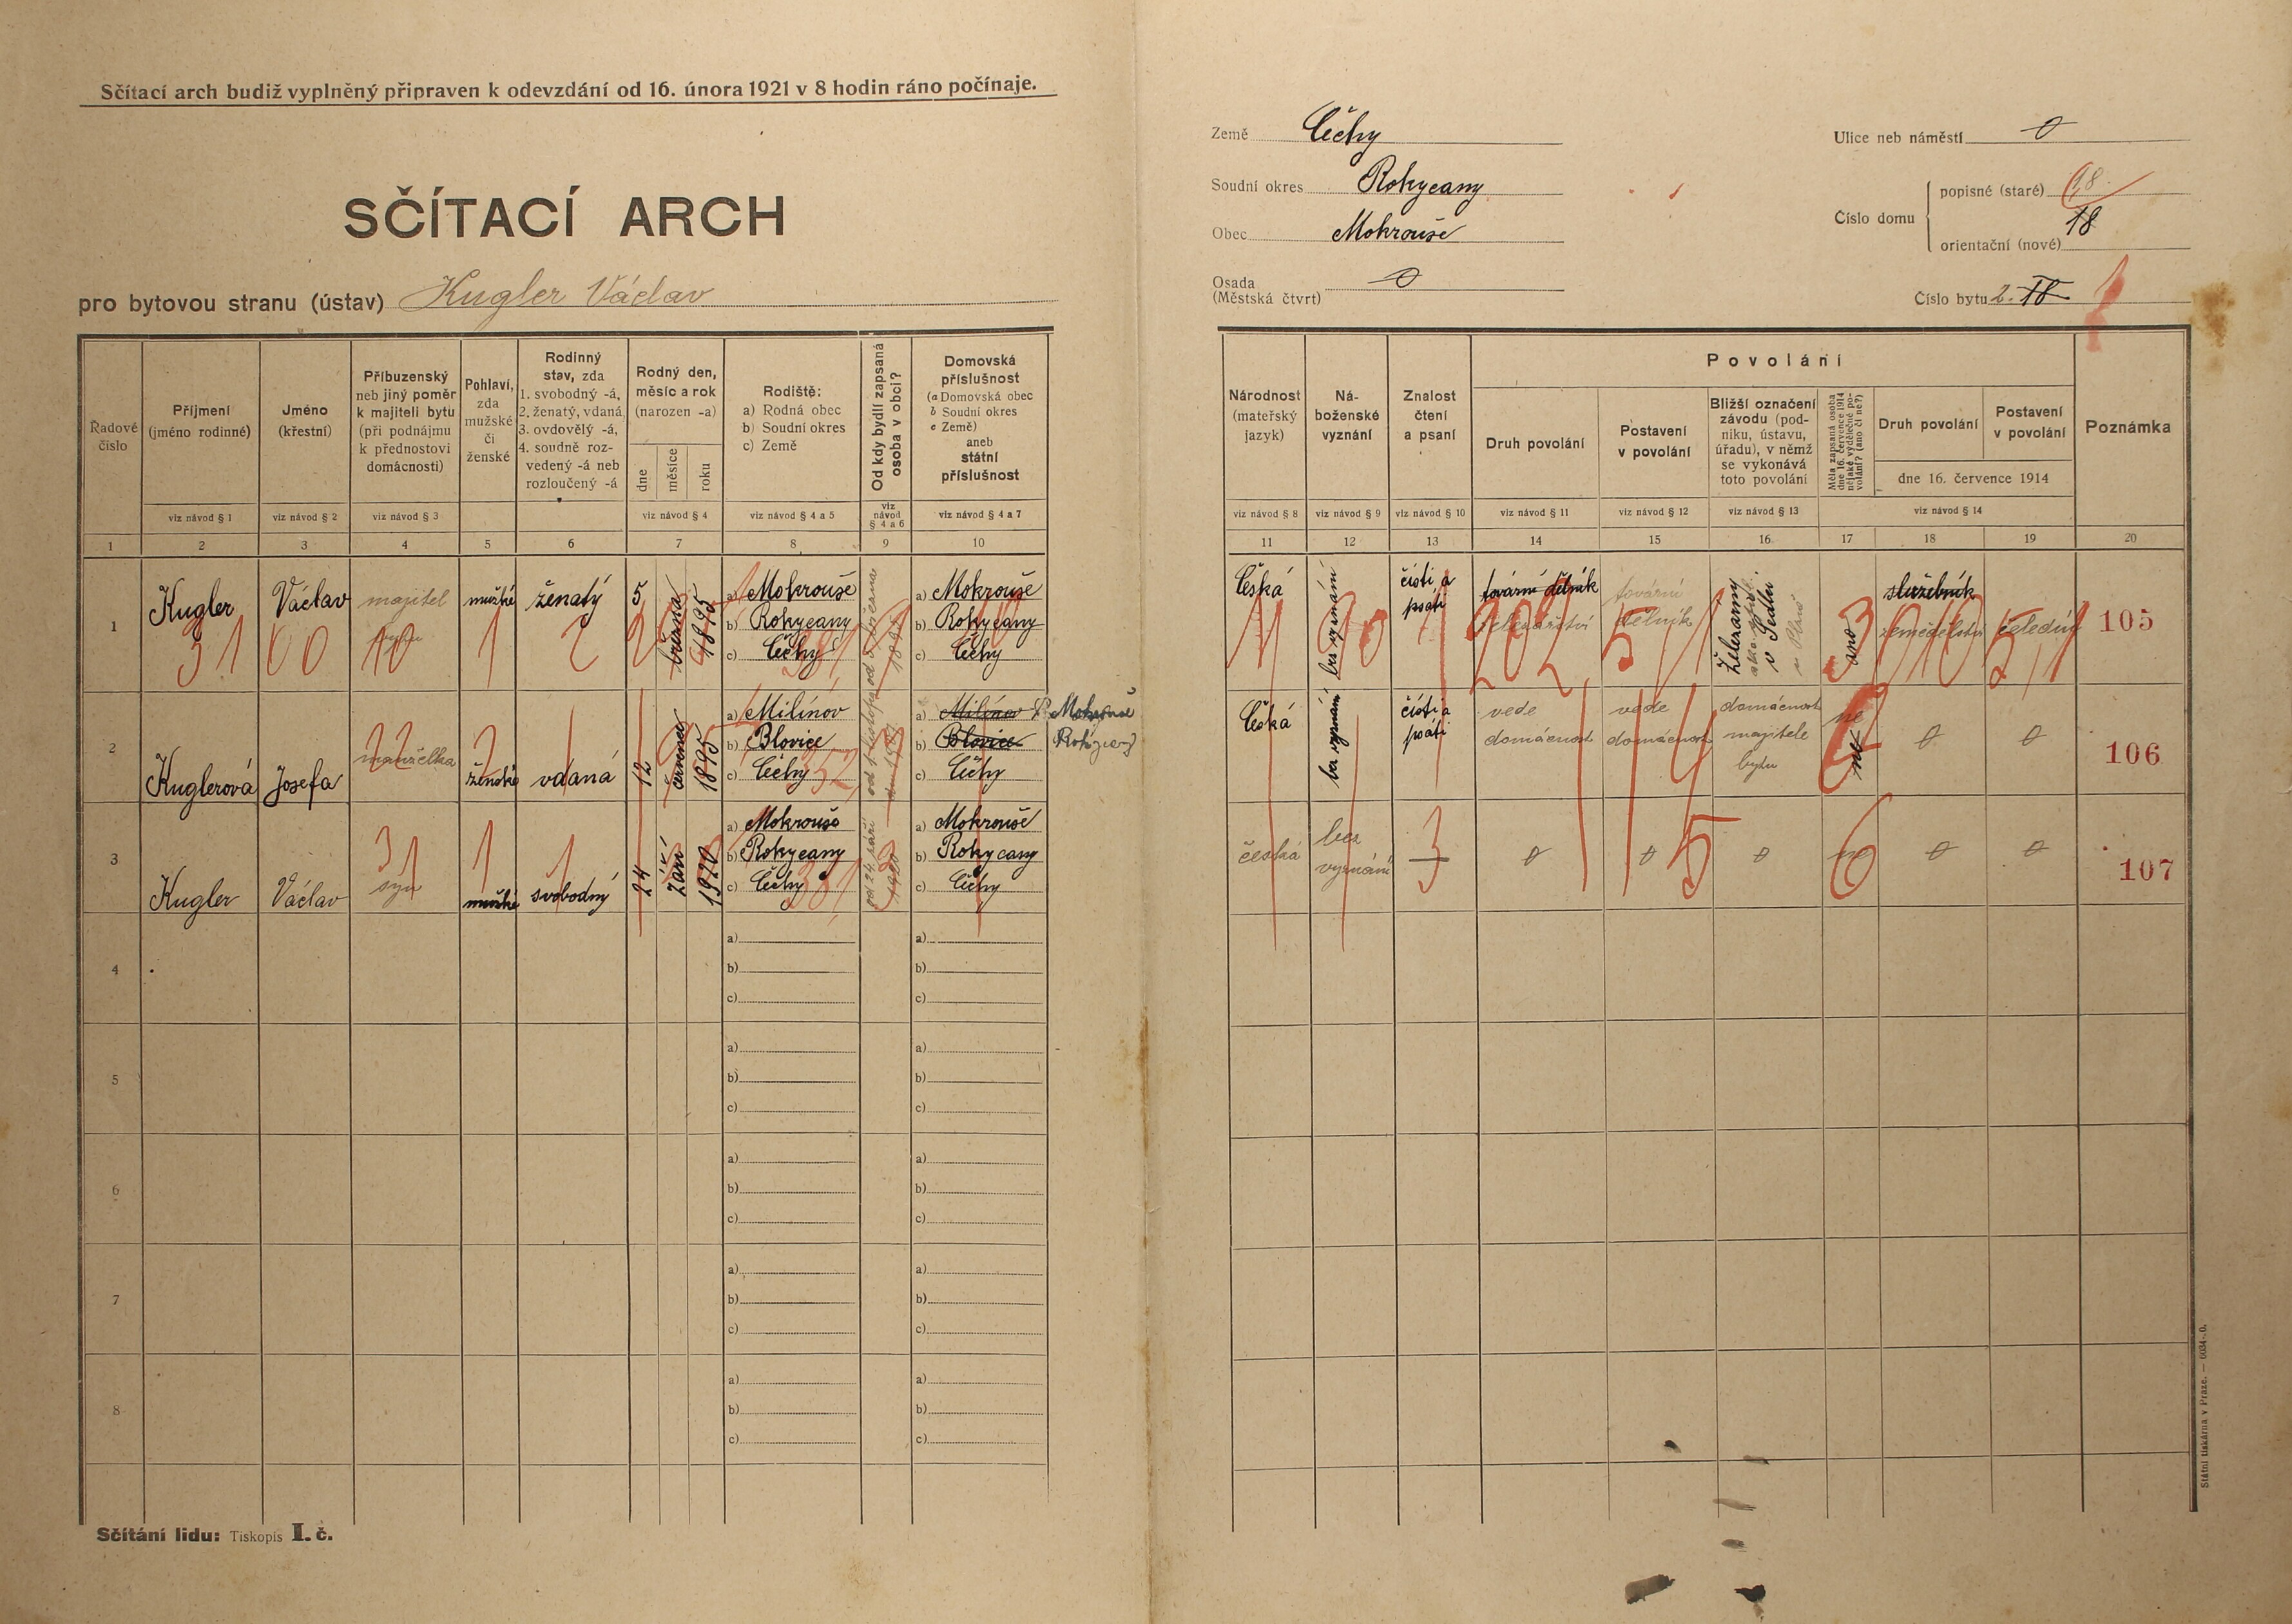 Sčítací arch budiž vyplněný připraven k odevzdání od 16. února 1921 v 8 hodin ráno počínaje.
SČÍTACÍ ARCH
pro bytovou stranu (ústav) Kugler Václav
Země Čechy
Soudní okres Rokycany
Obec Mokrouše
Osada
(Městská čtvrť) 0
Ulice neb náměstí 0
Číslo domu
popisné (staré) 18
orientační (nové) 18
Číslo bytu 2. 18
Řadové číslo
Příjmení
(jméno rodinné)
Jméno
(křestní)
Příbuzenský
neb jiný poměr
k majiteli bytu
(při podnájmu
k přednostovi
domácnosti)
Pohlaví,
zda
mužské
či
ženské
Rodinný
stav, zda
1. svobodný -á,
2. ženatý, vdaná,
3. ovdovělý -á,
4. soudně roz-
vedený -á neb
rozloučený -á
Rodný den,
měsíc a rok
(narozen -a)
dne
měsíce
roku
Rodiště:
a) Rodná obec
b) Soudní okres
c) Země
Od kdy bydlí zapsaná
osoba v obci?
Domovská
příslušnost
(a Domovská obec
b Soudní okres
c Země)
aneb
státní
příslušnost
Národnost
(mateřský
jazyk)
Ná-
boženské
vyznání
Znalost
čtení
a psaní
Povolání
Druh povolání
Postavení
v povolání
Bližší označení
závodu (pod-
niku, ústavu,
úřadu), v němž
se vykonává
toto povolání
Měla zapsaná osoba
dne 16. července 1914
nějaké výdělečné po-
volání? (ano či ne?)
Druh povolání
Postavení
v povolání
dne 16. července 1914
Poznámka
viz návod § 1
viz návod § 2
viz návod § 3
viz návod § 4
viz návod § 4 a 5
viz návod § 4 a 6
viz návod § 4 a 7
viz návod § 8
viz návod § 9
viz návod § 10
viz návod § 11
viz návod § 12
viz návod § 13
viz návod § 14
1 2 3 4 5 6 7 8 9 10 11 12 13 14 15 16 17 18 19 20
1 Kugler Václav majitel bytu mužské ženatý 5 března 1895
a) Mokrouše
b) Rokycany
c) Čechy
a) Mokrouše
b) Rokycany
c) Čechy
Česká bez vyznání čísti a psáti
tovární dělník
železářství
tovární
dělník
Železárny
v Sedlci
ano
služebník
zemědělství
čeledín
105
2 Kuglerová Josefa manželka ženské vdaná 12 červenec 1895
a) Milínov
b) Blovice
c) Čechy
a) Milínov Mokrouše
b) Blovice Rokycany
c) Čechy
Česká bez vyznání čísti a psáti
vede
domácnost
vede
domácnost
domácnost
majitele
bytu
ne
0 0
106
3 Kugler Václav syn mužské svobodný 24 září 1920
a) Mokrouše
b) Rokycany
c) Čechy
od 24. září 1920
a) Mokrouše
b) Rokycany
c) Čechy
česká
bez
vyznání
— 0 0 0 0 0
107
4
a) a)
b) b)
c) c)
5
a) a)
b) b)
c) c)
6
a) a)
b) b)
c) c)
7
a) a)
b) b)
c) c)
8
a) a)
b) b)
c) c)
Sčítání lidu: Tiskopis I. č.
Státní tiskárna v Praze. — 6034-.0.